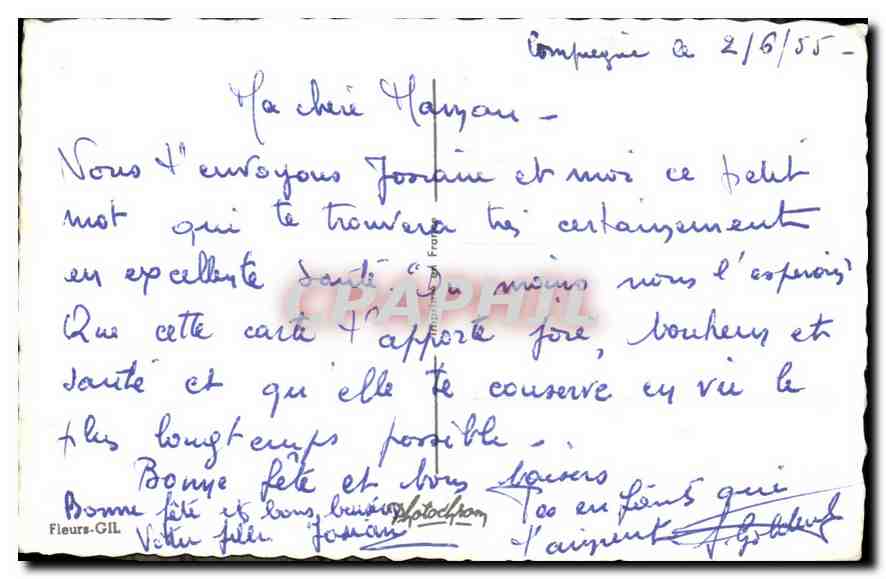 Compiegne le 2/6/55 -
Ma chère Maman -
Nous t'envoyons Josiane et moi ce petit
mot qui te trouvera très certainement
en excellente santé. Du moins nous l'esperons
Que cette carte t'apporte joie, bonheur et
santé et qu'elle te conserve en vie le
plus longtemps possible -.
Bonne fête et bons baisers
Tes enfants qui
t'aiment
Bonne fête et bons baisers
Votre fille Josiane
Photochrom
Fleurs-GIL
Imprimé en France
CPAPHIL